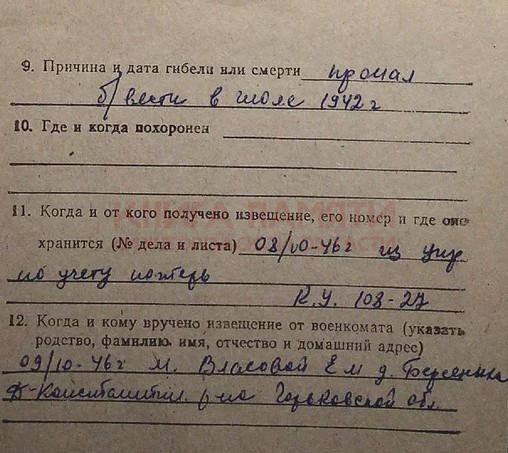 9. Причина и дата гибели или смерти пропал
б/вести в июле 1942 г
10. Где и когда похоронен
КНИГА ПАМЯТИ
11. Когда и от кого получено извещение, его номер и где оно
хранится (№ дела и листа) 08/VO-46г из упр
по учету потерь
К.У. 108-27
12. Когда и кому вручено извещение от военкомата (указать
родство, фамилию, имя, отчество и домашний адрес)
09/10-46г м. Власовой Е м д.
Д-Константин. р-на Горьковской обл.